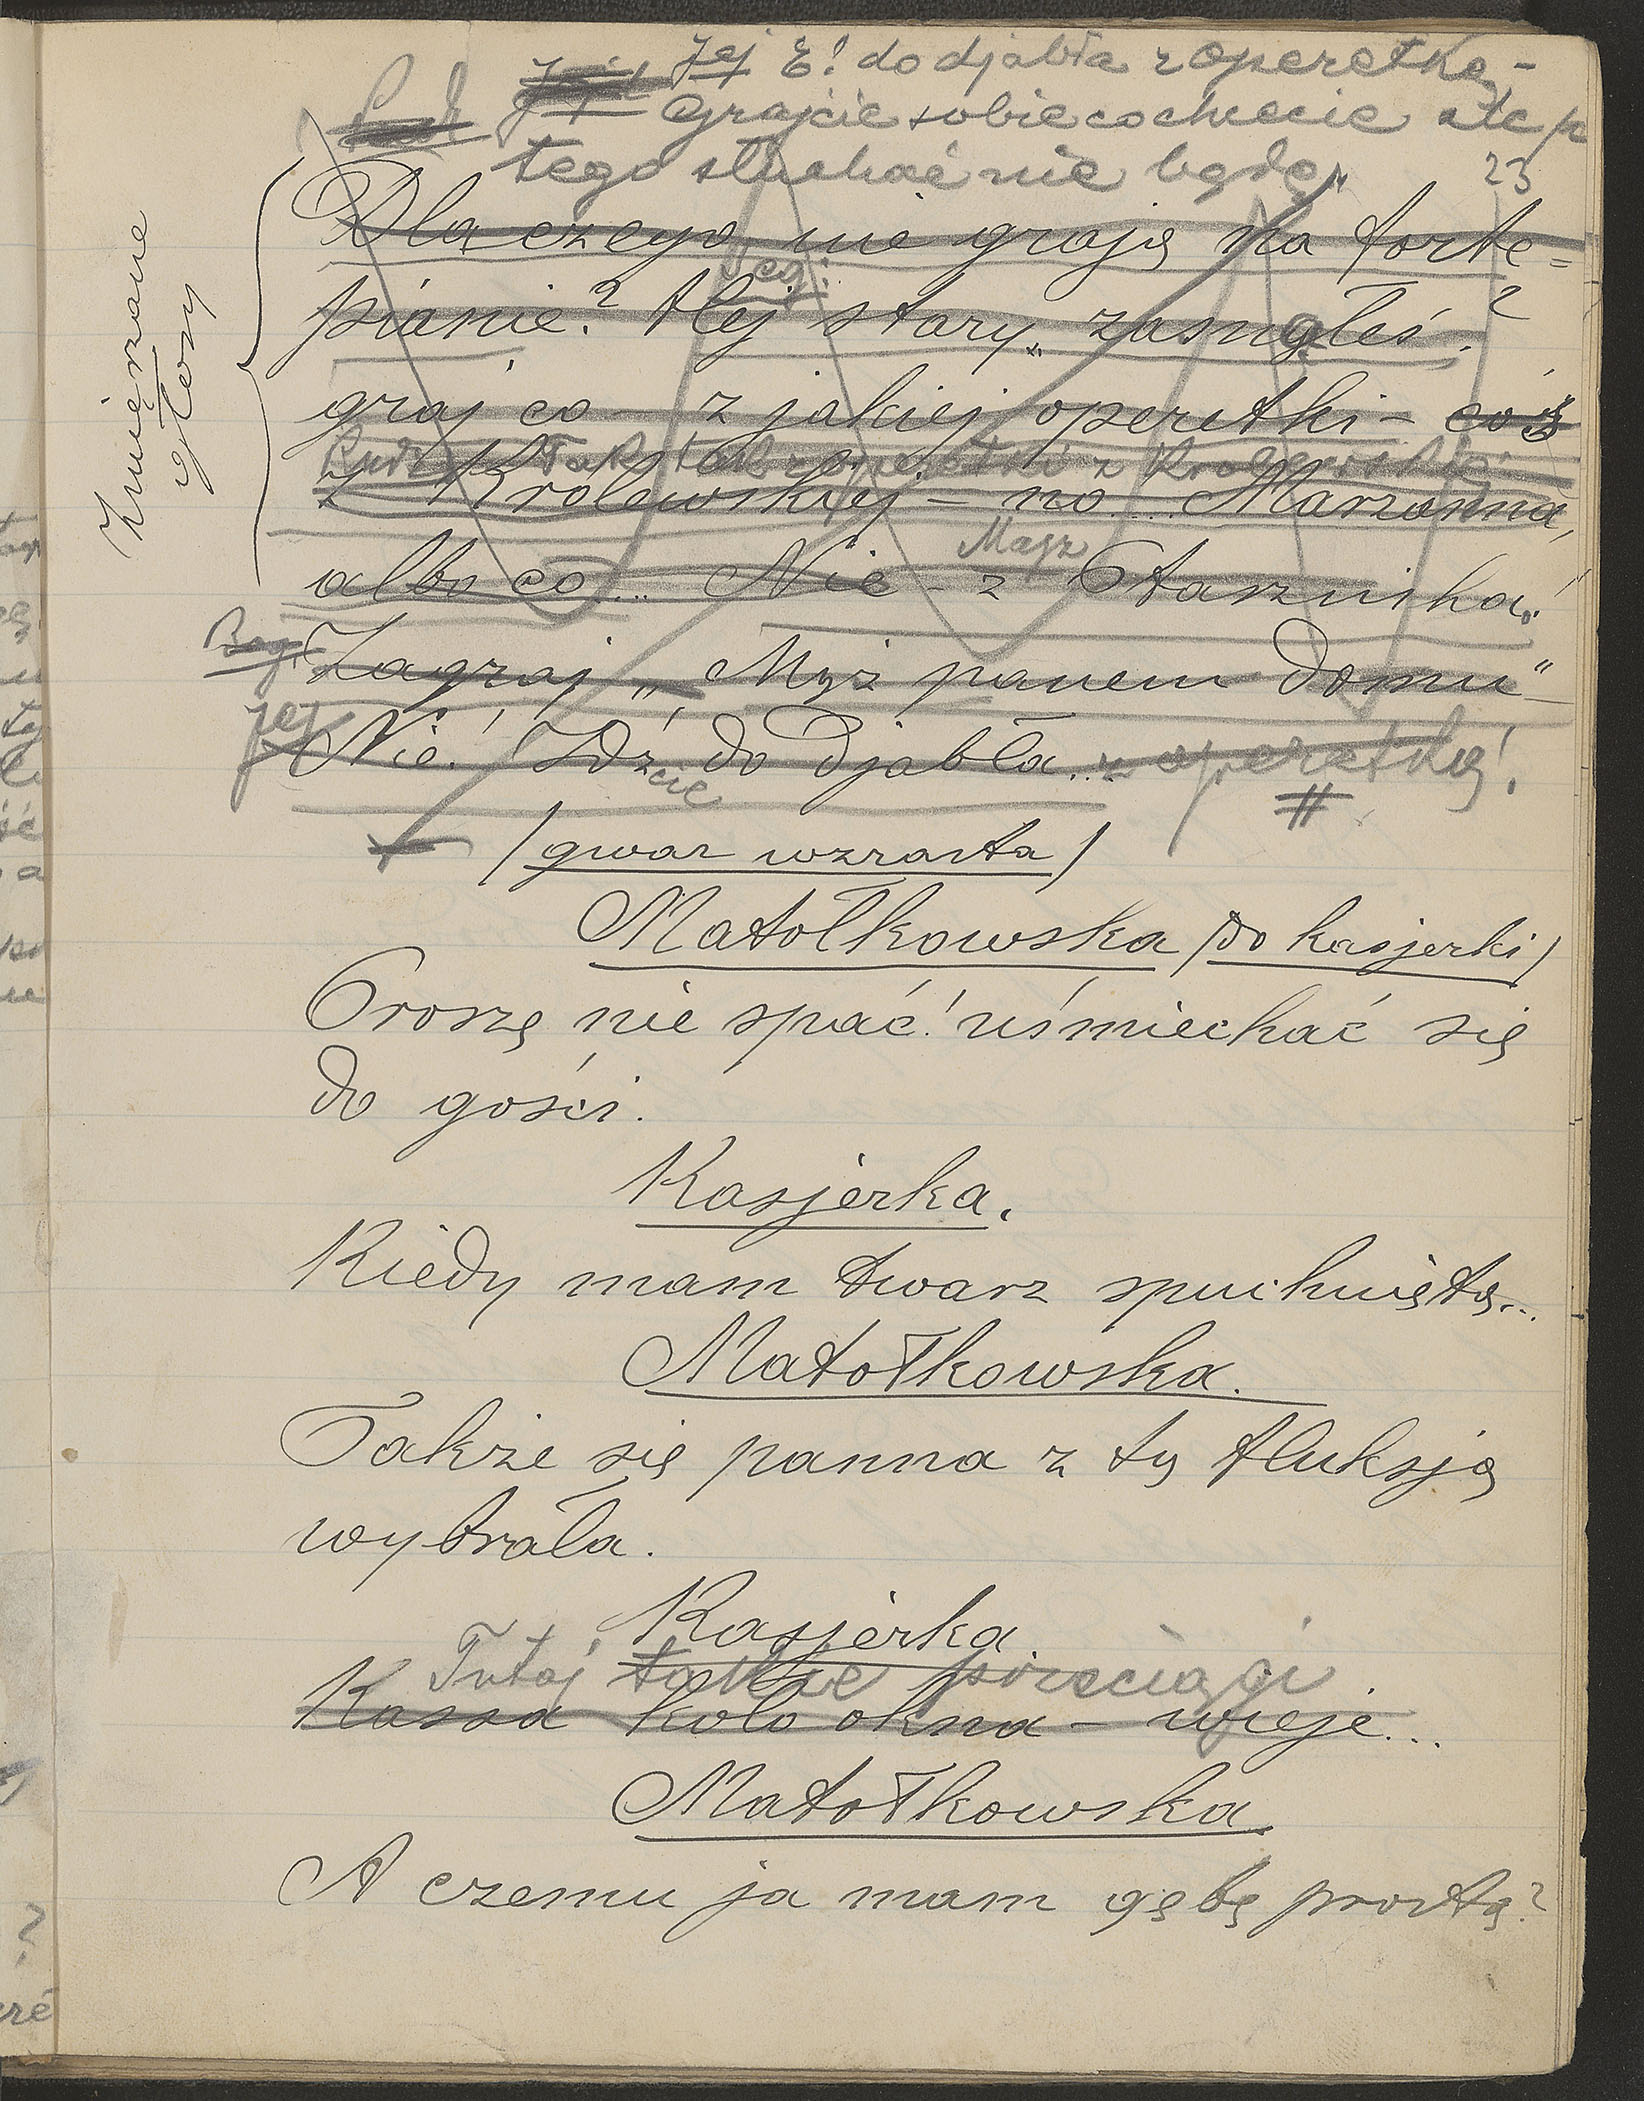 Jej E! do djabła z operetką –
grajcie sobie co chcecie ale ja
tego słuchać nie będę"
23
Zmięszane
głosy
Dla czego nie grają na forte=
pianie? Hej stary „zasnąłeś?
graj co – z jakiej operetki – coś
Tak tak z operetki z Królewskiej
z Królewskiej – no.... Marzanna,
Masz
albo co.... Nie – z Ptasznika!
Bag. Zagraj „Myż panem domu"
Jej Nie! Idź do djabła... z operetką!
cie
(gwar wzrasta)
Matołkowska (do kasjerki)
Proszę nie spać! uśmiechać się
do gości.
Kasjerka.
Kiedy mam twarz spuchniętą...
Matołkowska.
Także się panna z tą fluksją
wybrała.
Kasjerka.
Tutaj takie przeciągi
Kassa koło okna – wieje...
Matołkowska.
A czemu ja mam gębę prostą?